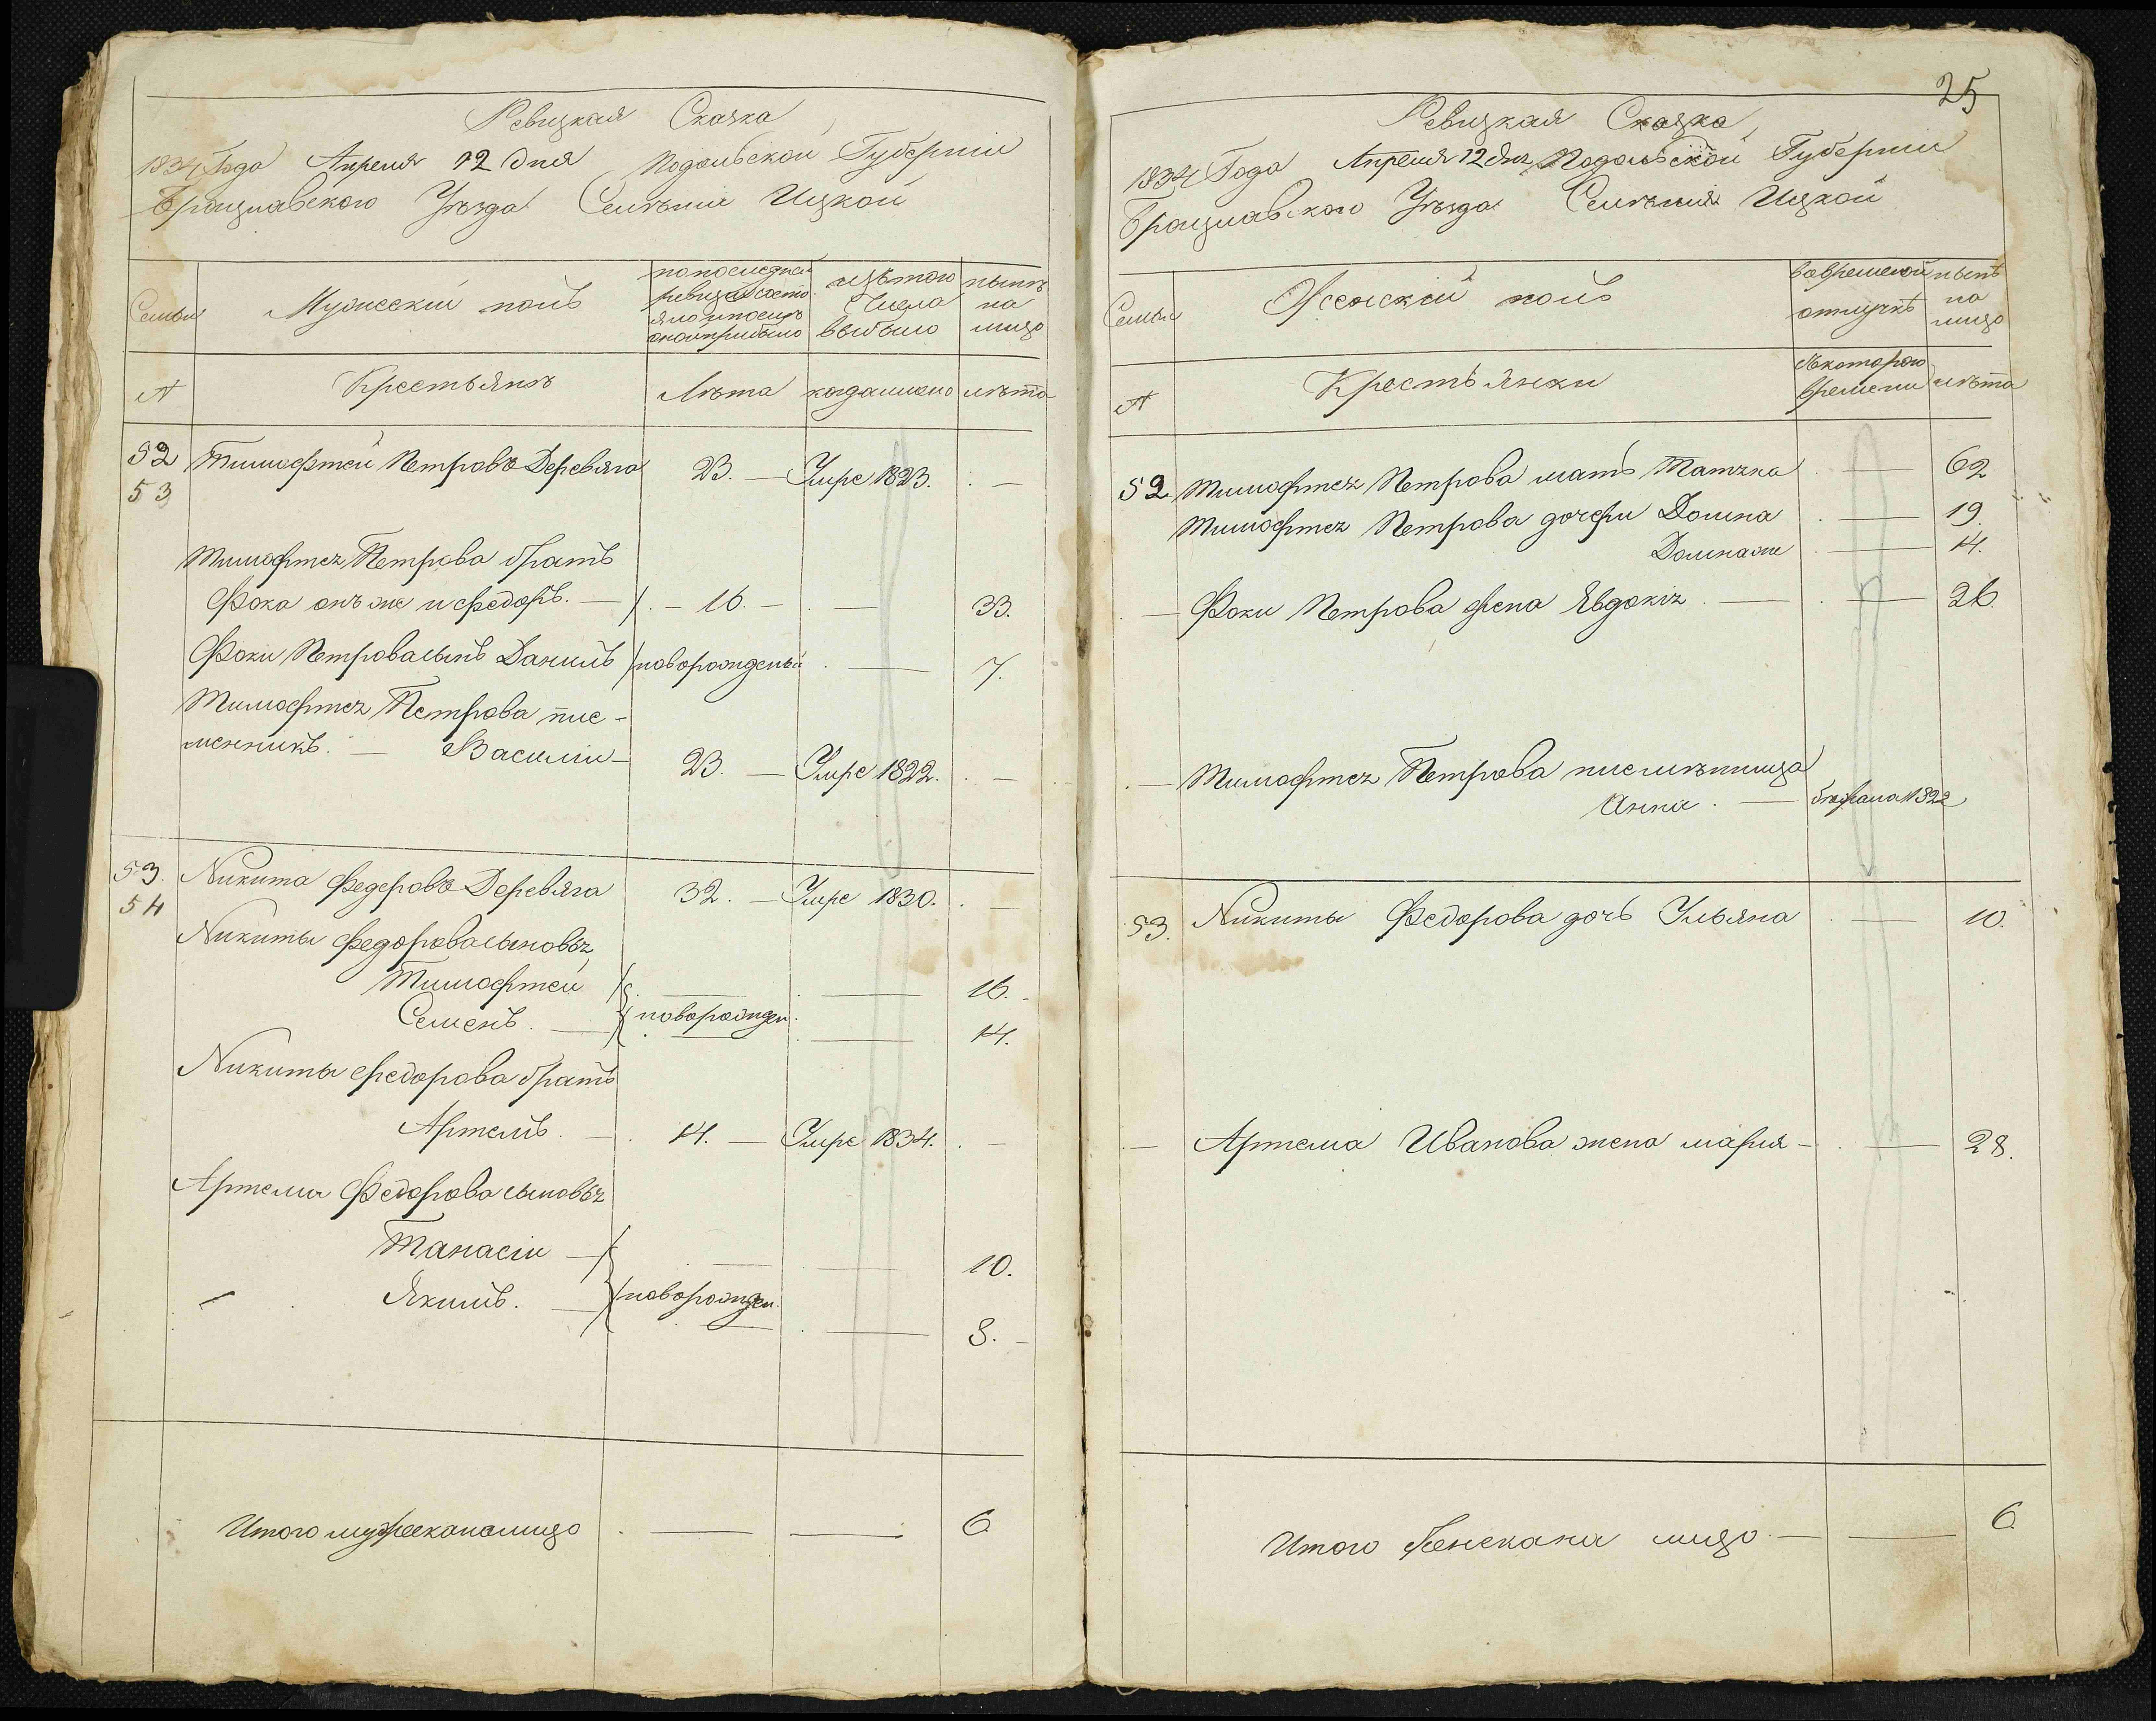 Ревизкая Сказка
1834 Года Апреля 12 дня Подольской Губернии
Брацлавского Уѣзда Селѣния Ицкой
Семьи
Мужеский полъ
попоследней ревизіи состояло и после оной прибыло
изътого Числа выбыло
нынѣ на лицо
№
Крестьянъ
Лѣта
когдаимено
лѣта
52 Тимофтей Петровъ Деревяга 23. — Умре 1823. . —
53
Тимофтея Петрова братъ
Фока онъ же и Федоръ. — . — 16. — . — 33.
Фоки Петрова сынъ Данилъ новорожденый . — 7.
Тимофтея Петрова пле-
менникъ. — Василий — 23. — Умре 1822. . —
53. Никита Федеровъ Деревяга 32. — Умре 1830. . —
54
Никиты Федорова сыновья
Тимофтей . — . — 16. -
Семенъ. — новорожден. . — 14.
Никиты Федорова братъ
Артемъ. — . 14. — Умре 1834. . —
Артема Федорова сыновья
Танасій — . — . — 10.
Якимъ. — новорожден. . — 8. -
Итого мужескано лицо . — — 6
25
Ревизкая Сказка,
1834 Года Апреля 12 дня Подольской Губернии
Брацлавского Уѣзда Селѣния Ицкой
Семьи
Женский полъ
вовременой отлучкѣ
нынѣ на лицо
№
Крестьянки
съкоторого времени
лѣта
52 Тимофтея Петрова мать Татяна . — 62
Тимофтея Петрова дочери Домна . — 19.
Домна же . — 14.
. — Фоки Петрова жена Явдокія . — . — 26.
. — Тимофтея Петрова племѣнница
Анна . — 1822
53. Никиты Федорова дочь Ульяна . — 10.
— Артема Иванова жена мария — . — 28.
Итого Женскана лицо . — — 6.